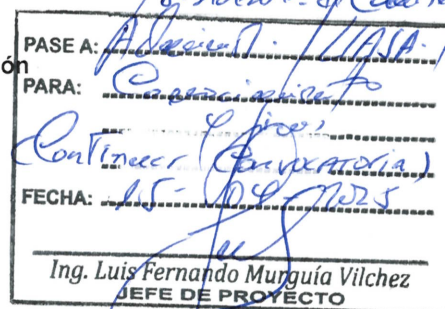 ón
PASE A: Administ. / UASA.
PARA: Conocimiento
y fines,
(Continuar Convocatoria)
FECHA: 15-04-2025
Ing. Luis Fernando Murguía Vilchez
JEFE DE PROYECTO